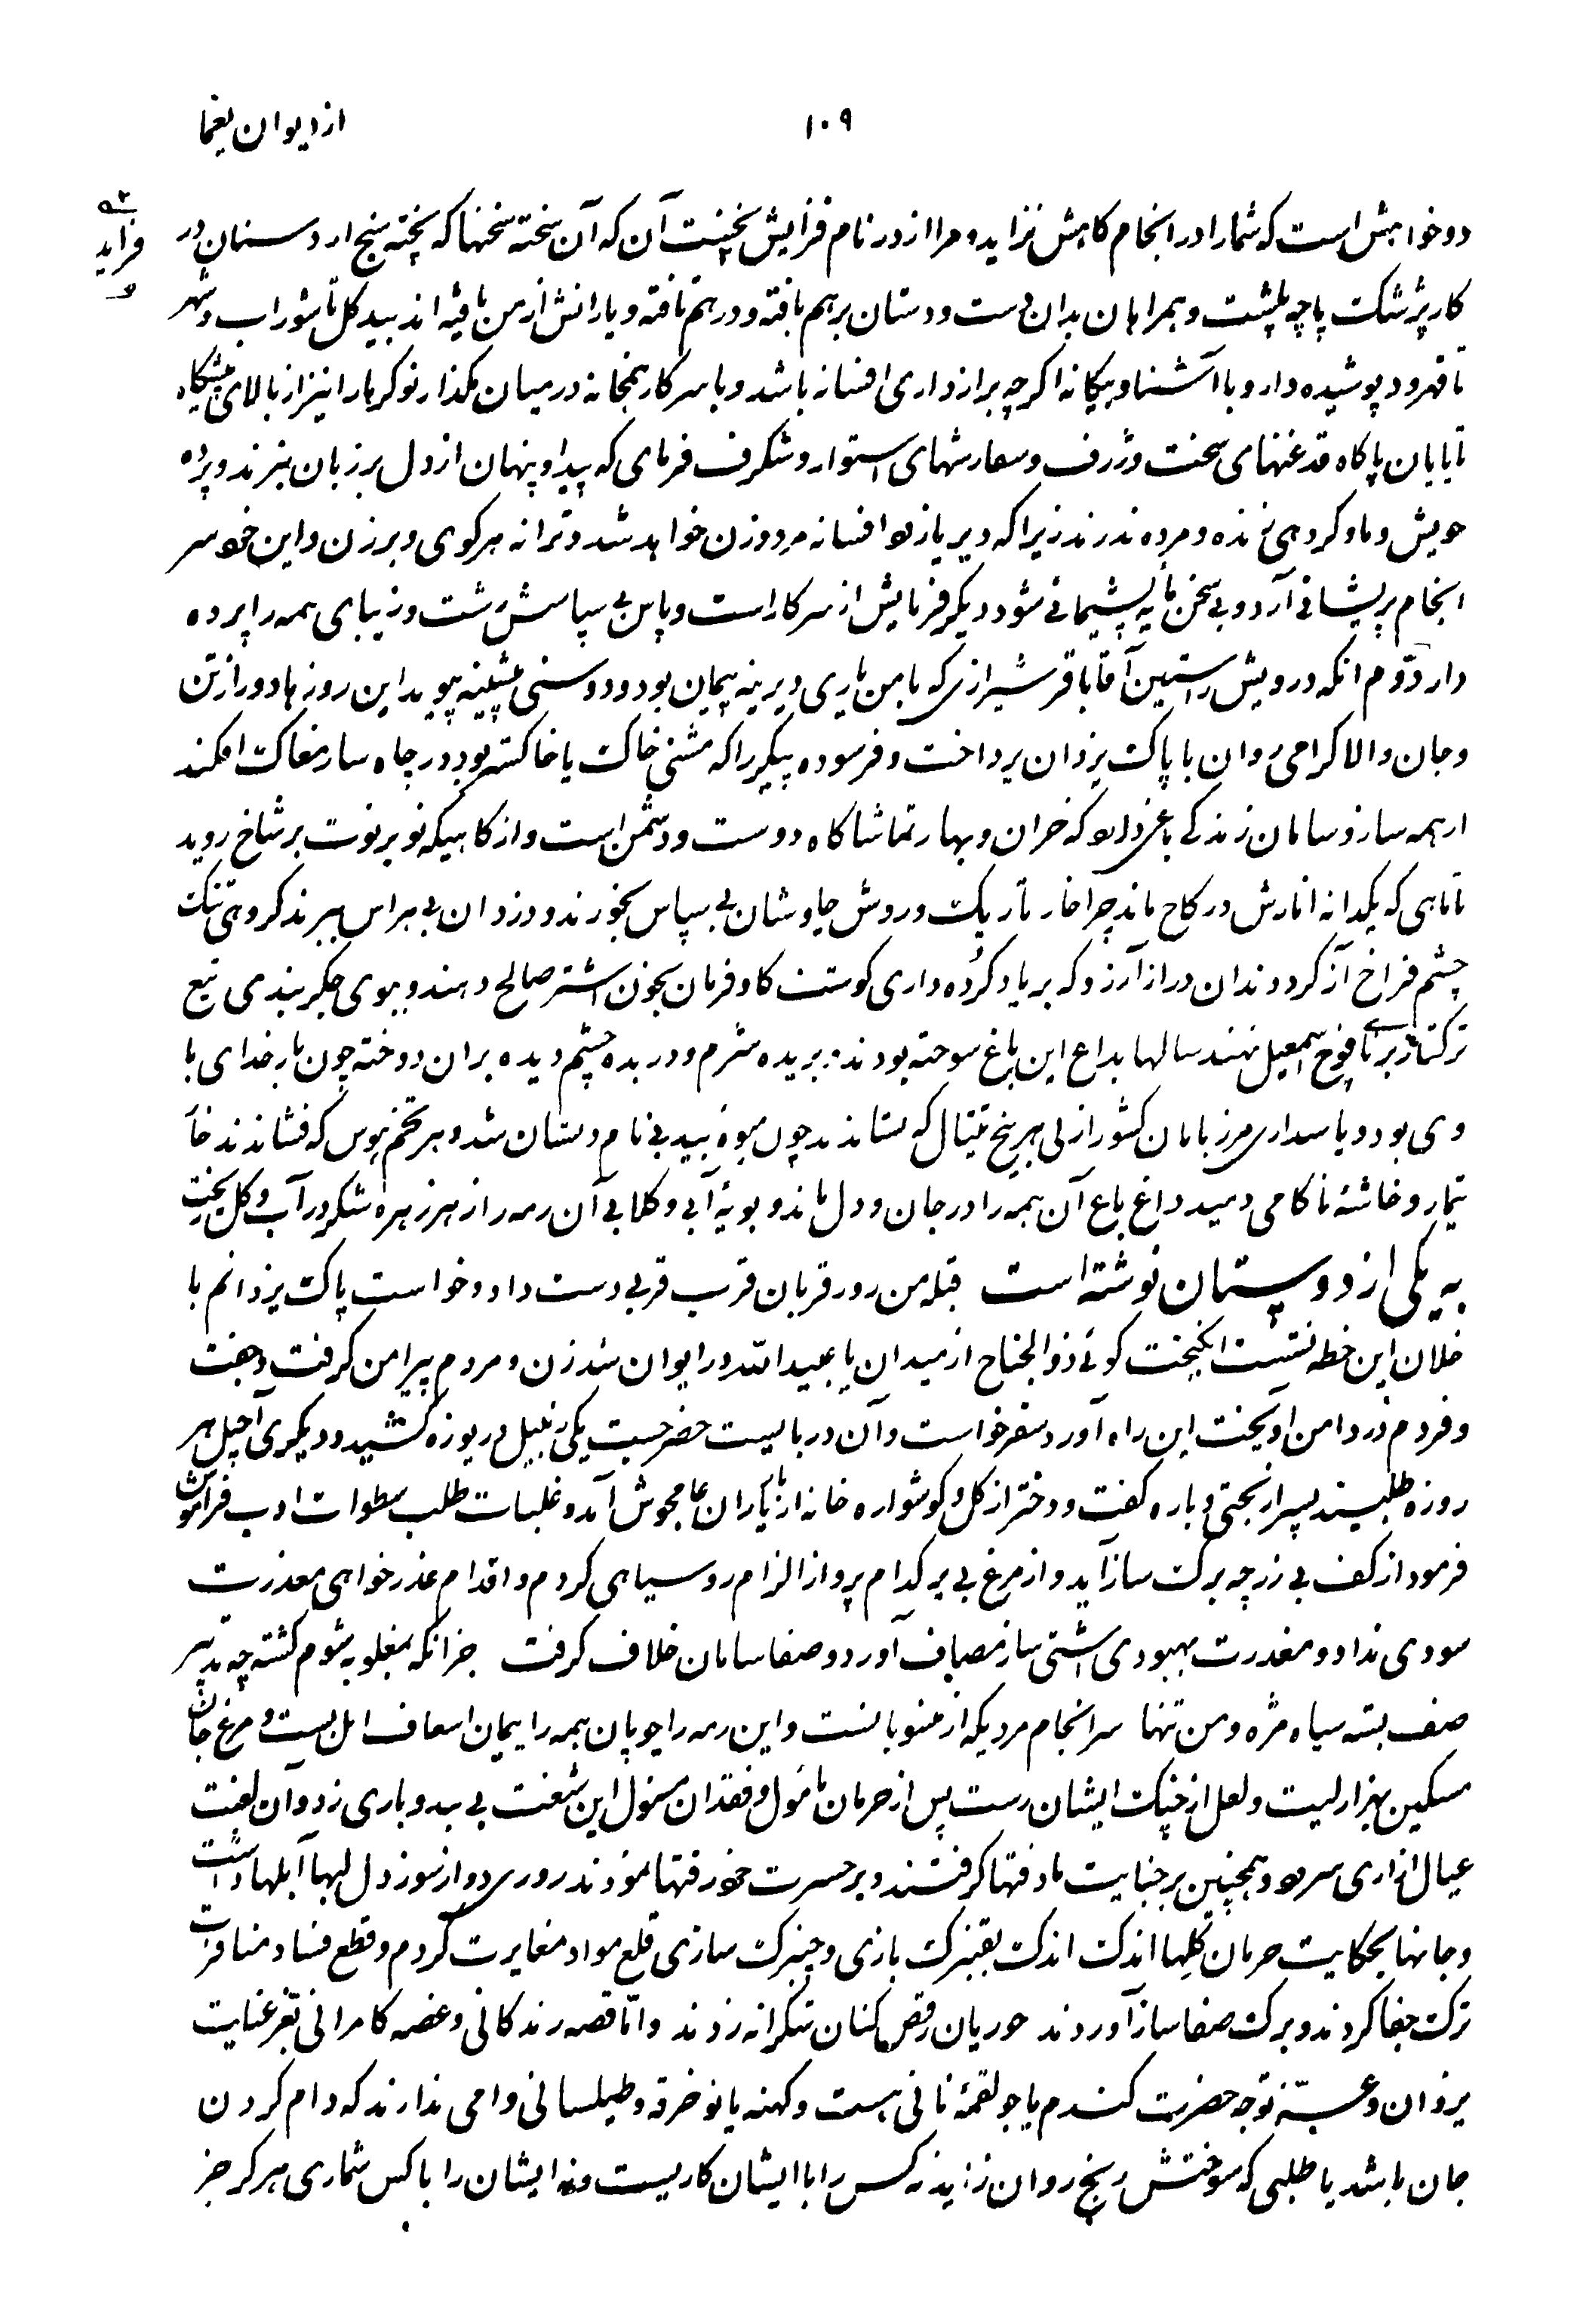 ۱۰۹
از دیوان یغما
دو خواهش است که شمارا در انجام کاهش نزاید و مرا از در نام فزایش نخست آن که آن سخته سخنها که پخته سنج اردستان در
فزاید
کار پزشک پاچه پلشت و همراهان بدان بست و دستان برهم بافته و درهم تافته و یارانش از من نافیه اند بید کل تا شوراب و شهر
تا قهرود پوشیده دار و با آشنا و بیکانه اکرچه براز داری افسانه باشد و با سرکار همخانه در میان مکذار نوکرها را نیز از بالای پیشکاه
تا پایان پاکاه قدغنهای سخت و ژرف و سفارشهای استوار و شکرف فرمای که پیدا و پنهان از دل بر زبان نبرند و پرده
خویش و ما و کروهی زنده و مرده ندرند زیرا که دیر یا زود افسانه مرد و زن خواهد شد و ترانه هر کوی و برزن و این خود سر
انجام پریشانی آرد و بی سخن مایه پشیمانی شود دیکر فرمایش از سرکار است و پاس بی سپاسش زشت و زیبای همه را پرده
دار دوم انکه درویش راستین آقا باقر شیرازی که با من یاری دیرینه پیمان بود و دوستی پیشینه پیوید این روزها دور از تن
و جان والا کرامی روان با پاک یزدان پرداخت و فرسوده پیکر را که مشتی خاک یا خاکستر بود در چاه سار مغاک افکند
از همه ساز و سامان زندکی باغی داد که خزان و بهار تماشاکاه دوست و دشمن است و از کاهیکه نوبر توت بر شاخ روید
تا ماهی که یکدانه انارش در کاخ ماند چراخار تاریک و روش چاوشان بی سپاس بخورند و دزدان بی هراس ببرند کروهی تنک
چشم فراخ آز کرد دندان دراز آرزو که بر یاد کرده داری کوست کاو فرمان بخون اشتر صالح دهند و ببوی جکر بندی تیغ
ترکتاز بر نافوخ اسمعیل نهند سالها بداغ این باغ سوخته بودند و بریده شرم و دریده چشم دیده بران دوخته چون بار خدای با
وی بود و پاسداری مرزبانان کشور از پی هر پنج تیتال که ستاندند چون میوه بید بی نام و نشان شد و هر تخم هوس که فشاندند خار
تیمار و خاشه ناکامی دمید داغ باغ آن همه را در جان و دل ماند و بویه آبی و کلابی آن رمه را از هرزهره شکر در آب و کل ریخت
به یکی از دوستان نوشته است قبله من روز قربان قرب قربی دست داد و خواست پاک یزدانم با
خلان این خطه نشست انکیخت کوئی ذوالجناح از میدان یا عبیدالله در ایوان شد زن و مردم پیرامن کرفت و جفت
و فردم در دامن آویخت این راه آورد سفر خواست و آن دربایست حضر جست یکی زنبیل دریوزه کشید و دیکری آجیل هر
روزه طلبید پسر از بختی و باره کفت و دختر از کل و کوشواره خانه از یاران عام بجوش آمد و غلبات طلب سطوات ادب فراموش
فرمود از کف بی زر چه برک ساز آید و از مرغ بی پر کدام پرواز الزام روسیاهی کردم و اقدام عذرخواهی معذرت
سودی نداد و مغدرت بهبودی اشتی ساز مصاف آورد و صفا سامان خلاف کرفت جز انکه بمغلوبه شوم کشته چه تدبیر
صف بسته سیاه مژه و من تنها سرانجام مردیکه از منوبانست و این رمه را چوپان همه را پیمان اسعاف امل بست و مرغ جان
مسکین بهزار لیت و لعل از چنک ایشان رست پس از حرمان مامول و فقدان مسئول این شعفت بی بید و باری زد و آن لفت
عیال آزاری سرود و همچنین بر جنایت ما دفتها کرفتند و بر حسرت خود رفتها نمودند روزی دو از سوز دل لبها آبلها داشت
و جانها بحکایت حرمان کلها اندک اندک بقنبرک بازی و چنبرک سازی قلع مواد مغایرت کردم و قطع فساد منافرات
ترک جفا کردند و برک صفا ساز آوردند حوریان رقص کنان شکرانه زدند و امّا قصه زندکانی و غصه کامرانی بغر عنایت
یزدان و عسبّه توجه حضرت کندم یا جو لقمه نانی هست و کهنه یا نو خرقه و طیلسانی وامی ندارند که دام کردن
جان باشد یا طلبی که سوختش رنج روان زاید نه کس را با ایشان کاریست و نه ایشان را با کس شماری هرکز جز